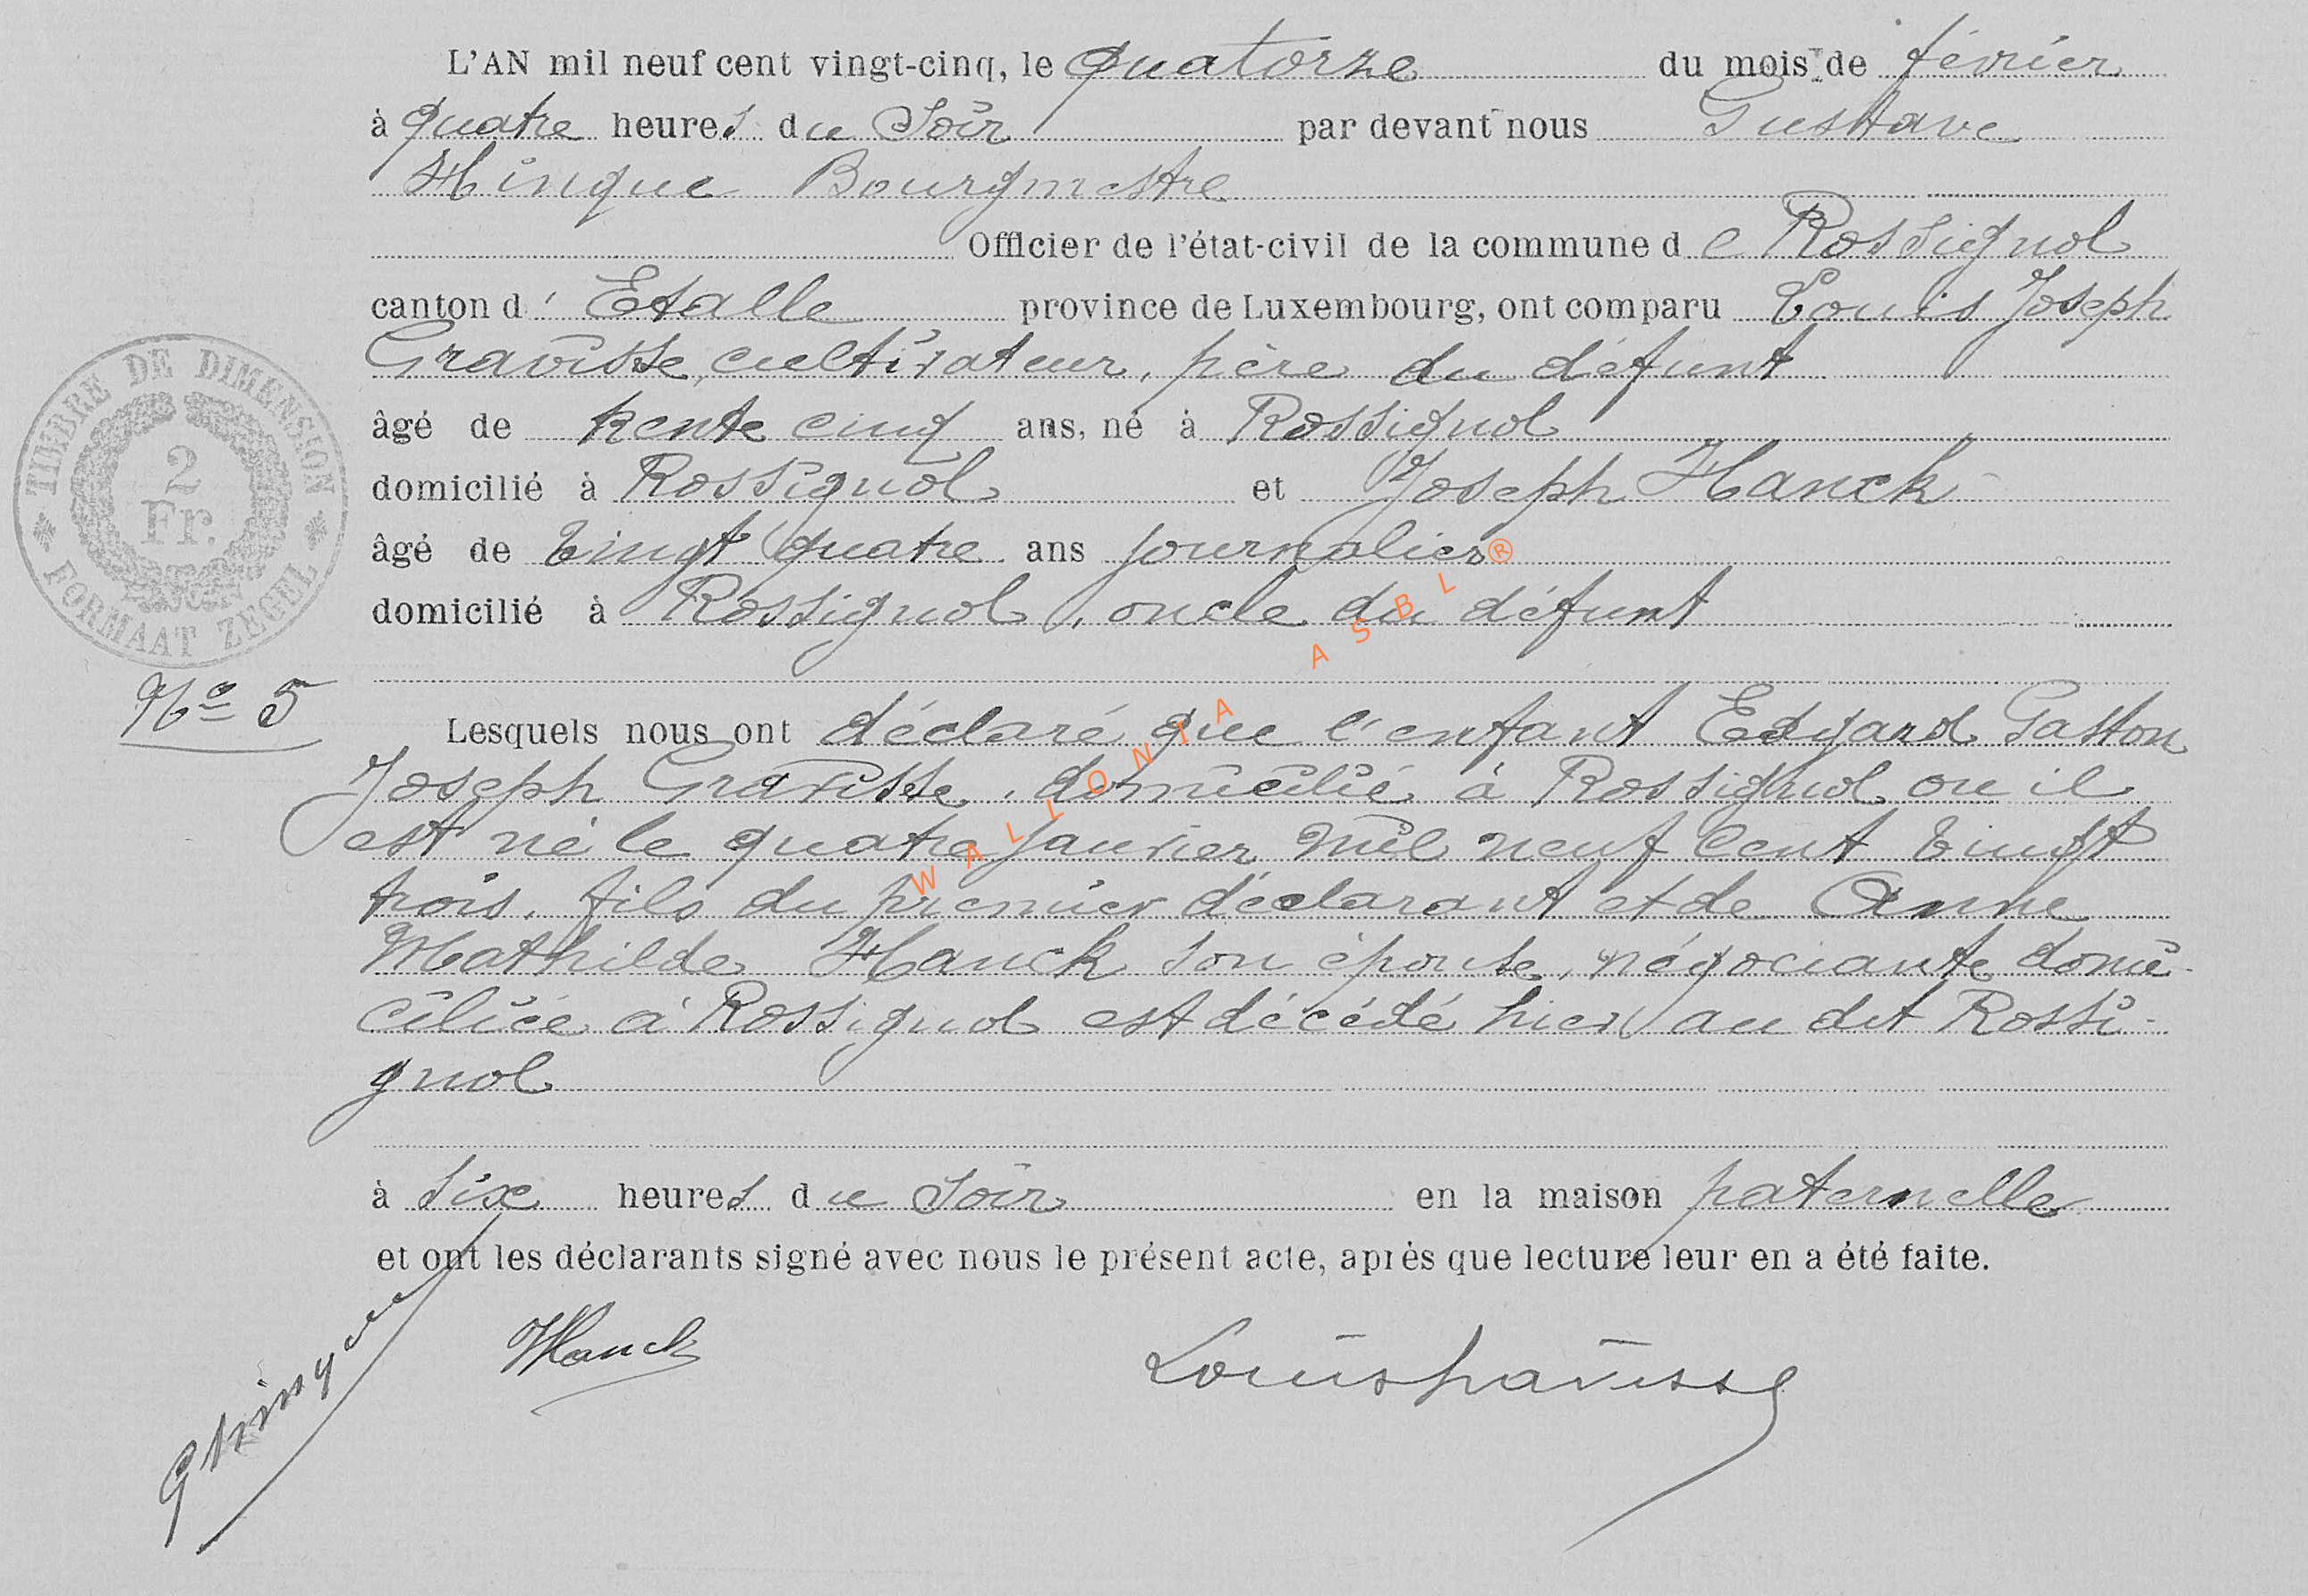 L'AN mil neuf cent vingt-cinq, le quatorze du mois de février
à quatre heures du Soir par devant nous Gustave
Hinque Bourgmestre
Officier de l'état-civil de la commune de Rossignol
canton d' Etalle province de Luxembourg, ont comparu Louis Joseph
Gravisse, cultivateur, père du défunt
âgé de trente cinq ans, né à Rossignol
domicilié à Rossignol et Joseph Hanck
âgé de vingt quatre ans journalier
domicilié à Rossignol, oncle du défunt
TIMBRE DE DIMENSION
2
Fr.
FORMAAT ZEGEL
No 5
Lesquels nous ont déclaré que l'enfant Edgard Gaston
Joseph Gravisse, domicilié à Rossignol ou il
est né le quatre janvier mil neuf cent vingt
trois, fils du premier déclarant et de Anne
Mathilde Hanck son épouse, négociante domi-
ciliée à Rossignol est décédé hier au dit Rossi-
gnol
à six heures du soir en la maison paternelle
et ont les déclarants signé avec nous le présent acte, après que lecture leur en a été faite.
GHinque
JHanck
Louis Gravisse
WALLONIA ASBL®